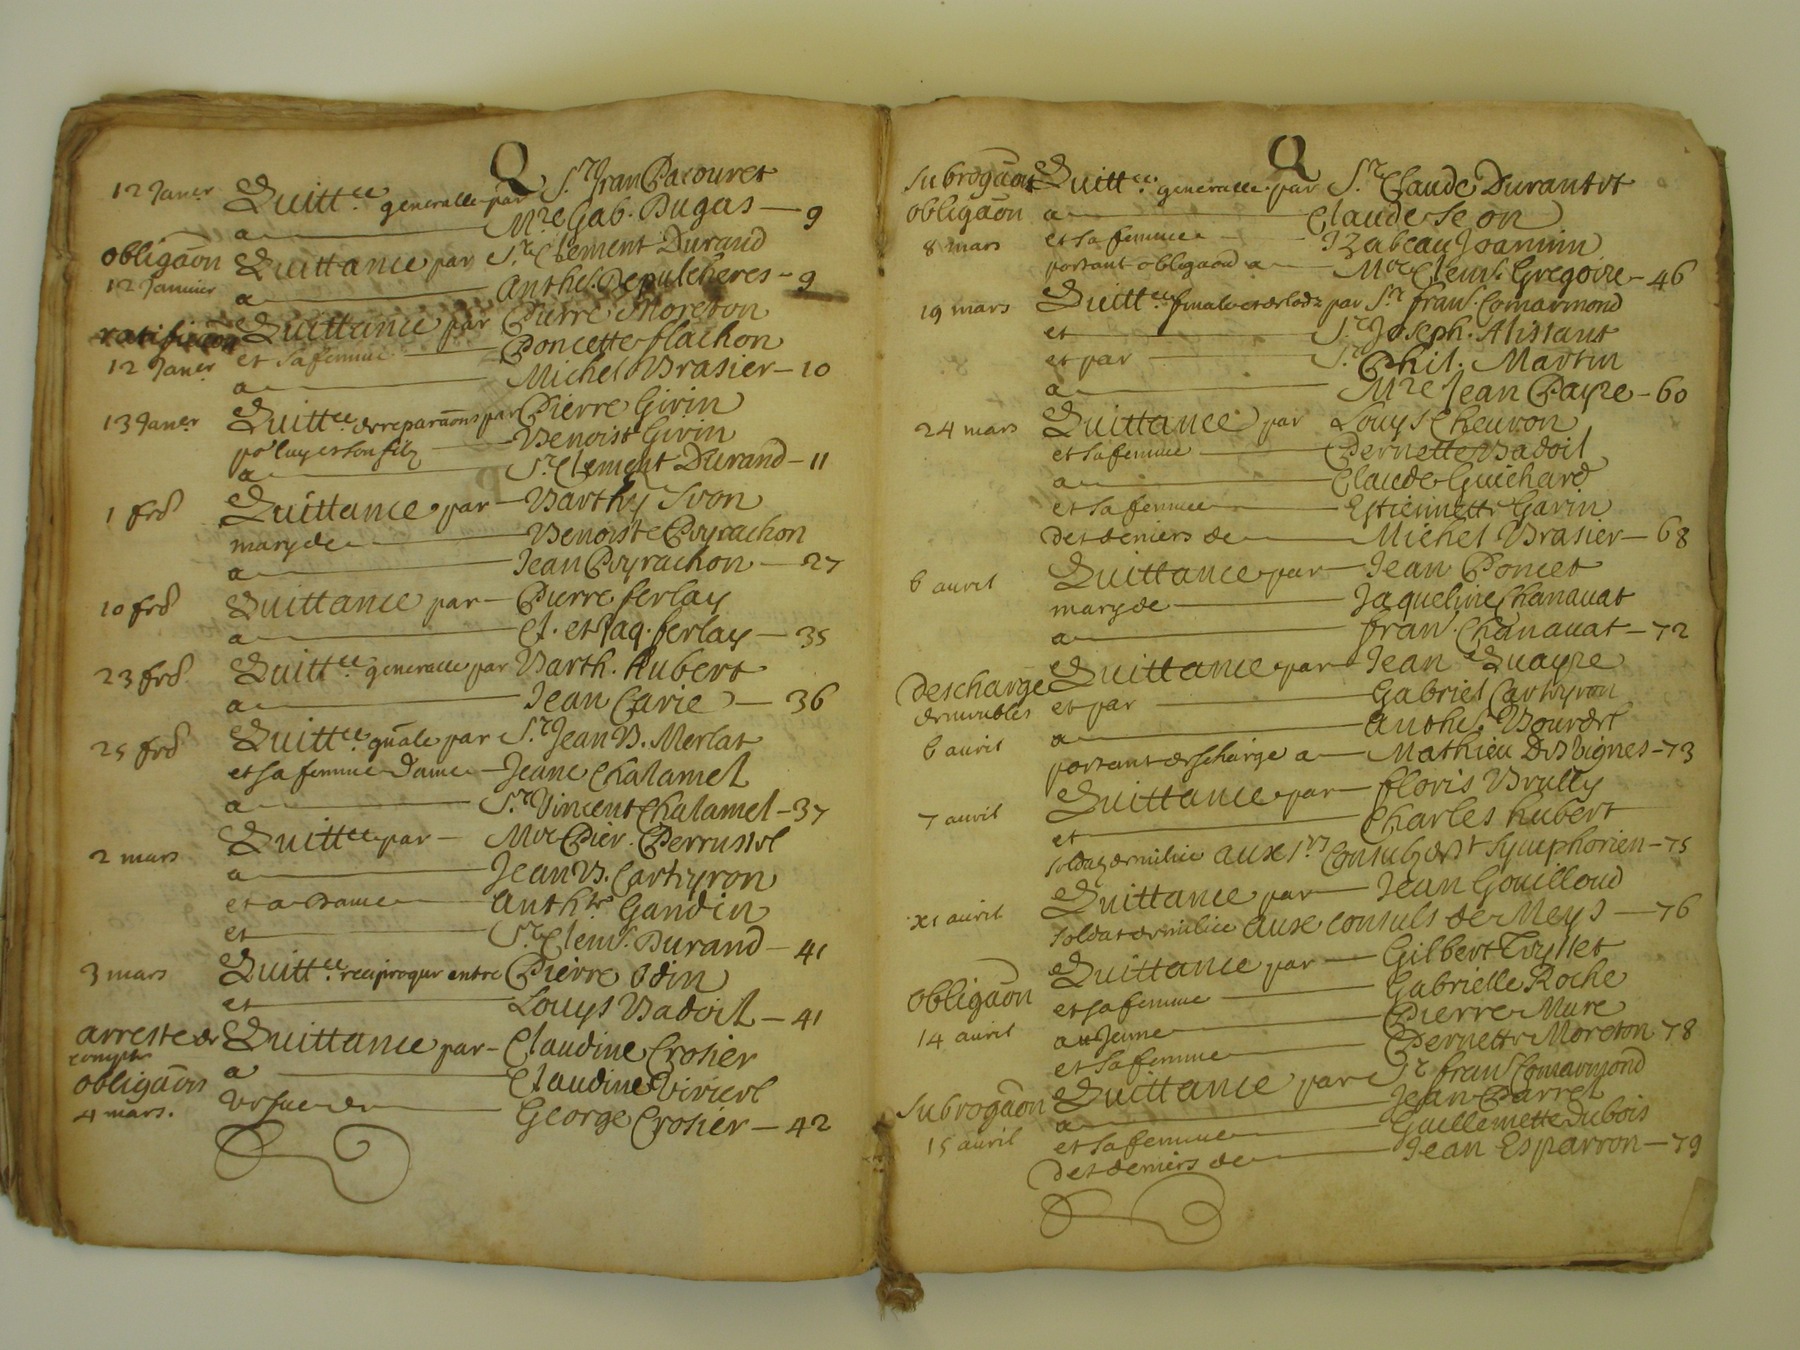 Q
12 Janer Quittce generalle par Sr Fran Pacouret
a Mre Gab. Dugas — 9
obligaon Quittance par Sr Clement Durand
12 Janvier a Anthe Depulcheres — 9
ratificaon Quittance par Pierre Moreton
et sa femme Poncette flachon
12 Janer a Michel Brasier — 10
13 Janer Quittce de reparaons par Pierre Girin
po luy et son filz Benoist Girin
a Sr Clement Durand — 11
1 frd Quittance par Barthy Svon
mary de Benoiste Poyrachon
a Jean Poyrachon — 27
10 frd Quittance par Pierre ferlay
a Cl. et Jaq. ferlay — 35
23 frd Quittce generalle par Barth. hubert
a Jean Carie — 36
25 frd Quittce gnale par Sr Jean B. Merlat
et sa femme Dame Jeane Chalamel
a Sr Vincent Chalamel — 37
2 mars Quittce par Mre Pier. Perrussel
a Jean B. Carteyron
et a Dame Anthte Gandin
et Sr Clemt Durand — 41
3 mars Quittce reciproque entre Pierre Odin
et Louys Badoil — 41
arreste de compte Quittance par Claudine Crosier
obligaon a Claudine Viricel
4 mars. vefve de George Crosier — 42
Q
subrogaon Quittce generalle par Sr Claude Durantet
obligaon a Claude Seon
8 mars et sa femme Izabeau Joannin
portant obligaon a Mre Clemt Gregoire — 46
19 mars Quittce finale et de lodz par Sr frans. Comarmond
et Sr Joseph. Alissant
et par Sr Phil. Martin
a Mre Jean Payre — 60
24 mars Quittance par Louys Chevron
et sa femme Pernette Badoil
a Claude Guichard
et sa femme Estiennette Garin
des deniers de Michel Brasier — 68
6 avril Quittance par Jean Poncet
mary de Jaqueline Chanavat
a fran. Chanavat — 72
descharge Quittance par Jean Quayre
de meubles et par Gabriel Carteyron
6 avril a Anthe. Bourdet
portant descharge a Mathieu DesVignes — 73
7 avril Quittance par floris Brully
et Charles hubert
soldatz de milice aux srs Consulz de St Symphorien — 75
xi avril Quittance par Jean Gouilloud
soldat de milice aux consuls de Meys — 76
Quittance par Gilbert
obligaon et sa femme Gabrielle Roche
14 avril au Jeune Pierre Mure
et sa femme Pernette Moreton 78
subrogaon Quittance par Sr frans Comarmond
a Jean Parret
15 avril et sa femme Guillemette Dubois
des deniers de Jean Esparron — 79